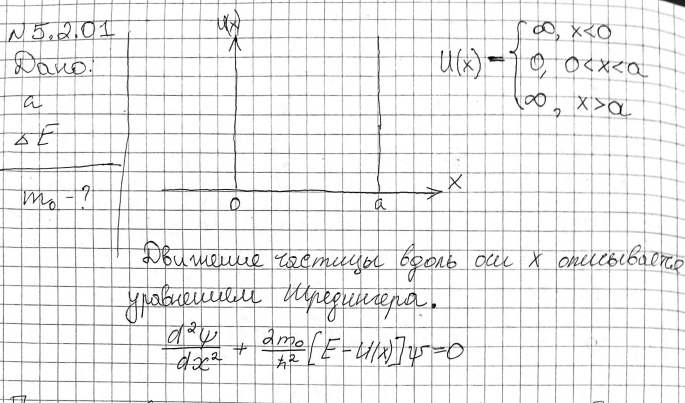 N 5.2.01
Дано:
a
ΔE
m₀ - ?
U(x)
0 a x
U(x) = { ∞, x<0
0, 0<x<a
∞, x>a
Движение частицы вдоль оси x описывается
уравнением Шредингера.
d²ψ/dx² + 2m₀/ħ² [E - U(x)]ψ = 0